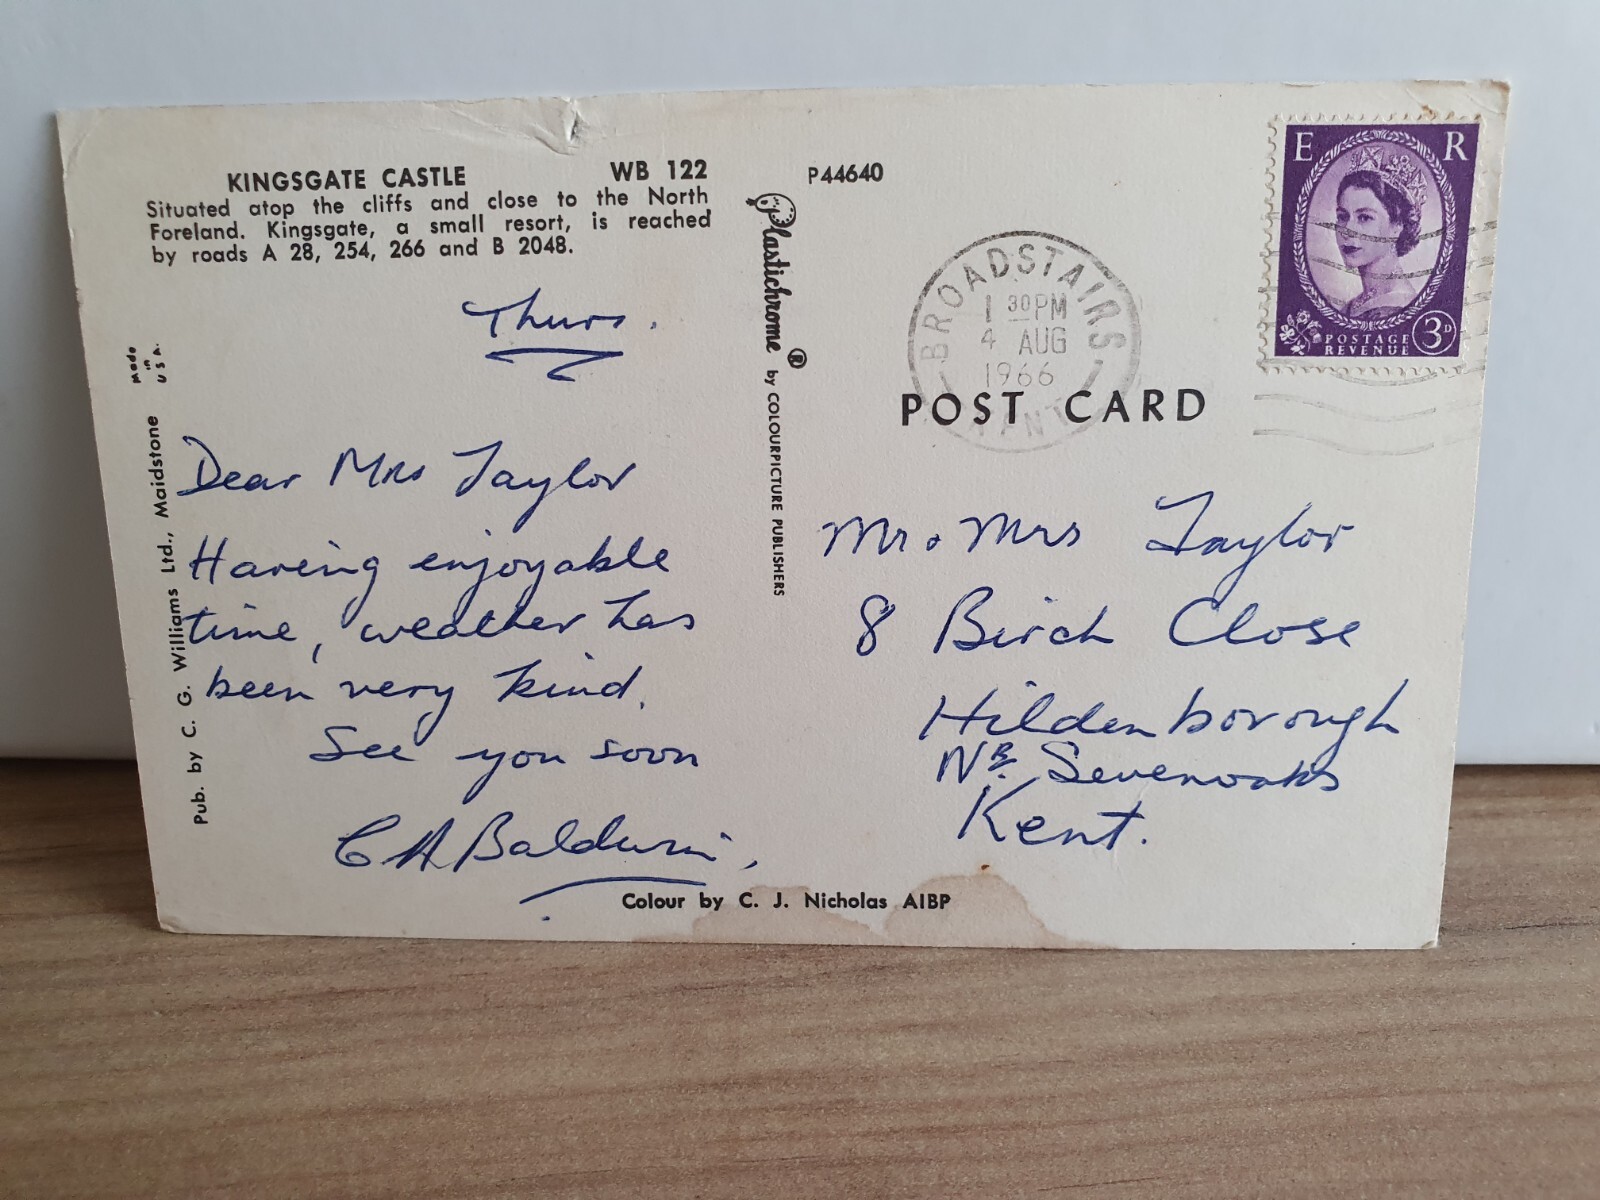 KINGSGATE CASTLE WB 122
Situated atop the cliffs and close to the North
Foreland. Kingsgate, a small resort, is reached
by roads A 28, 254, 266 and B 2048.
Thurs.
Dear Mrs Taylor
Having enjoyable
time, weather has
been very kind.
See you soon
C A Baldwin,
Made
in
U S A.
Pub. by C. G. Williams Ltd., Maidstone
Plastichrome ® by COLOURPICTURE PUBLISHERS
P44640
BROADSTAIRS
1 30 PM
4 AUG
1966
KENT
E R
POSTAGE
REVENUE
3D
POST CARD
Mr & Mrs Taylor
8 Birch Close
Hildenborough
NR. Sevenoaks
Kent.
Colour by C. J. Nicholas AIBP